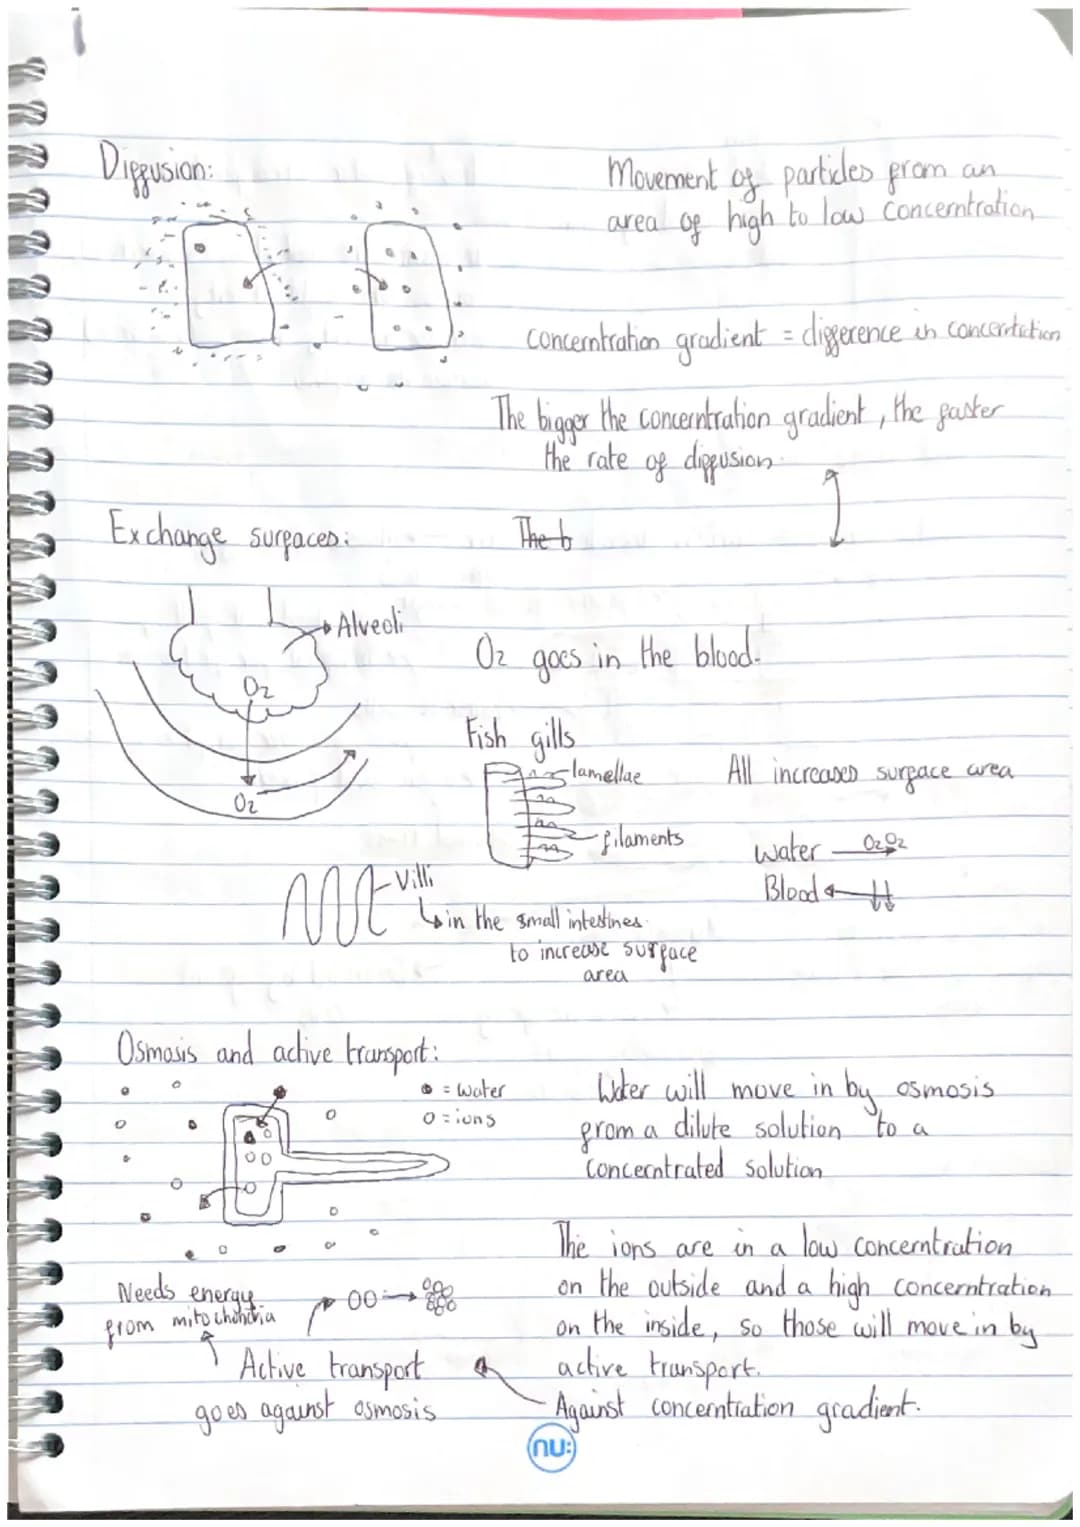 Diffusion:
Movement of particles from an
area of high to low concerntration
concerntration gradient = difference in concerntration
The bigger the concerntration gradient, the faster
the rate of diffusion.
Exchange surfaces:
The b
Alveoli
O2
O2
O2 goes in the blood.
Fish gills
lamellae
filaments
All increases surface area
Water O2 O2
Blood
Villi
in the small intestines
to increase surface
area
Osmosis and active transport:
= water
O = ions
Water will move in by osmosis
from a dilute solution to a
concerntrated solution
The ions are in a low concerntration
on the outside and a high concerntration
on the inside, so those will move in by
active transport.
Against concerntration gradient.
Needs energy
from mitochondria
Active transport
goes against osmosis
nu: